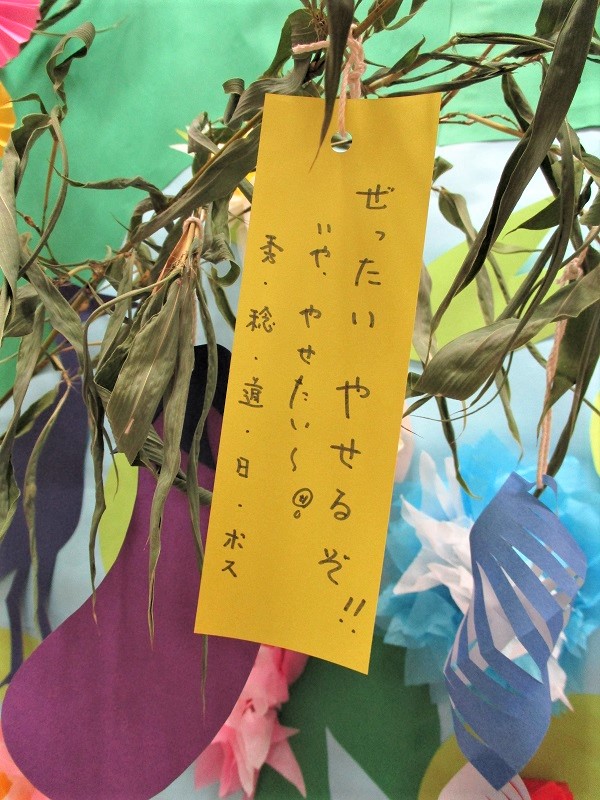 ぜったい やせるぞ!!
いや、やせたい〜
秀・稔・道・日・ボス